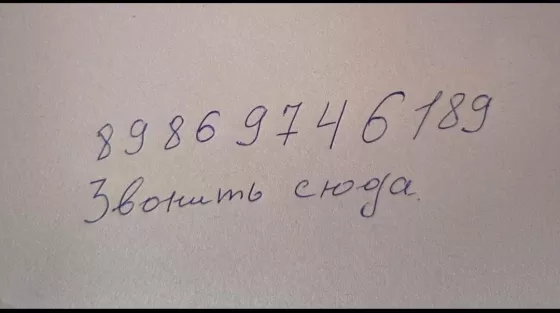 89869746189
Звонить сюда.